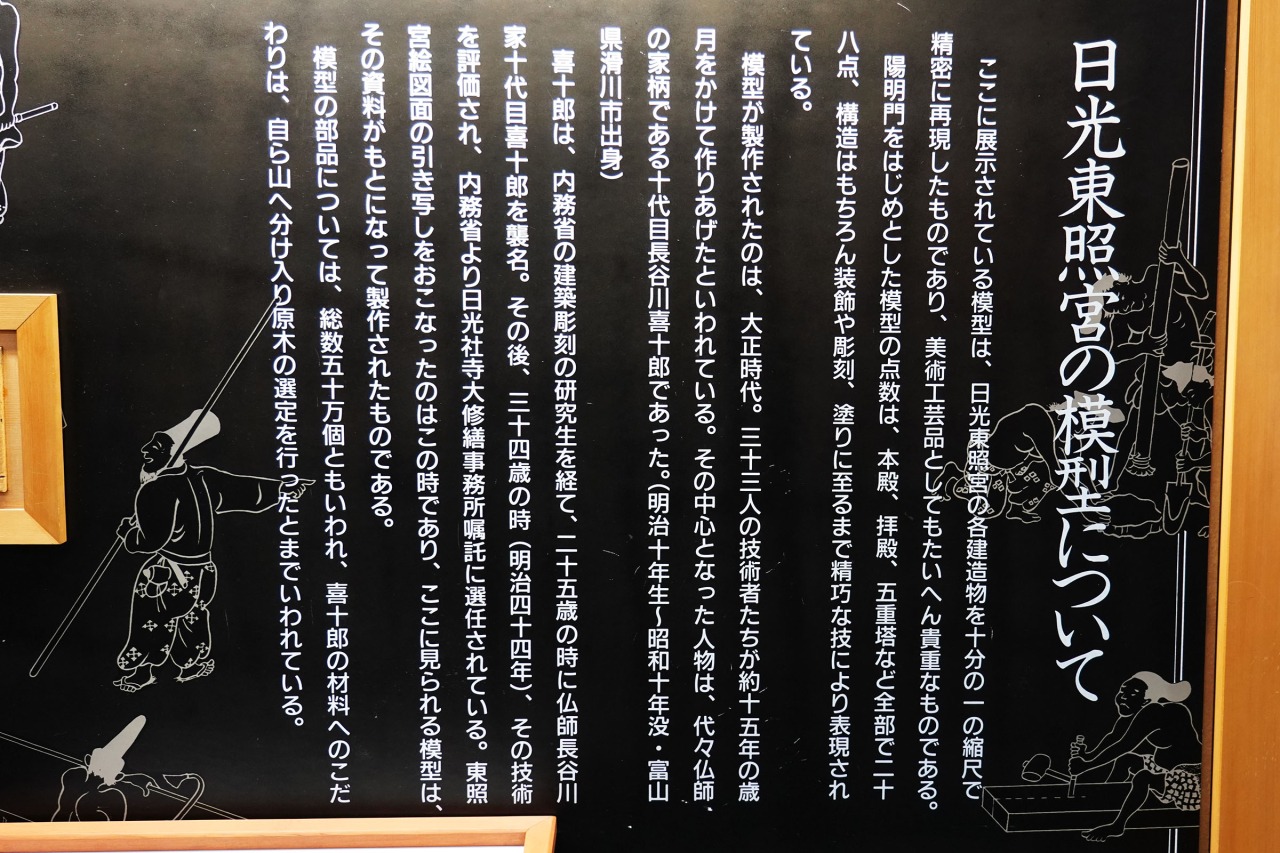 日光東照宮の模型について
ここに展示されている模型は、日光東照宮の各建造物を十分の一の縮尺で
精密に再現したものであり、美術工芸品としてもたいへん貴重なものである。
陽明門をはじめとした模型の点数は、本殿、拝殿、五重塔など全部で二十
八点、構造はもちろん装飾や彫刻、塗りに至るまで精巧な技により表現され
ている。
模型が製作されたのは、大正時代。三十三人の技術者たちが約十五年の歳
月をかけて作りあげたといわれている。その中心となった人物は、代々仏師、
の家柄である十代目長谷川喜十郎であった。(明治十年生〜昭和十年没・富山
県滑川市出身)
喜十郎は、内務省の建築彫刻の研究生を経て、二十五歳の時に仏師長谷川
家十代目喜十郎を襲名。その後、三十四歳の時(明治四十四年)、その技術
を評価され、内務省より日光社寺大修繕事務所嘱託に選任されている。東照
宮絵図面の引き写しをおこなったのはこの時であり、ここに見られる模型は、
その資料がもとになって製作されたものである。
模型の部品については、総数五十万個ともいわれ、喜十郎の材料へのこだ
わりは、自ら山へ分け入り原木の選定を行ったとまでいわれている。